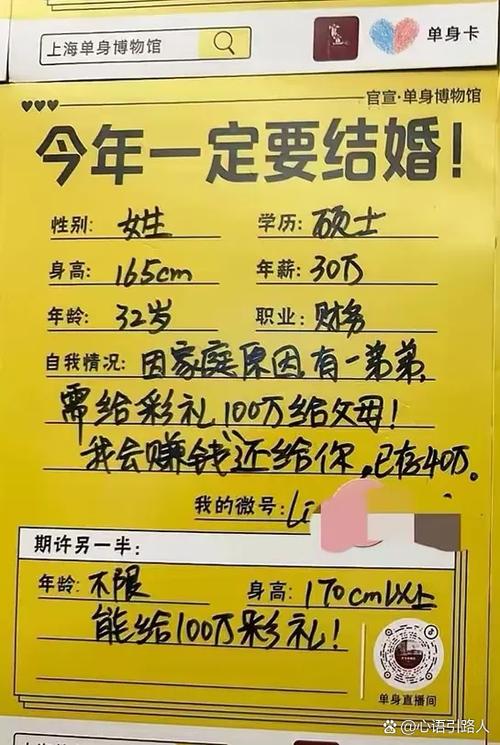 上海单身博物馆
官宣
单身卡
官宣·单身博物馆
今年一定要结婚!
性别: 女生 学历: 硕士
身高: 165cm 年薪: 30万
年龄: 32岁 职业: 财务
自我情况: 因家庭原因,有一弟弟,
需给彩礼100万给父母!
我会赚钱还给你,已存40万。
我的微号: Li
期许另一半:
年龄: 不限 身高: 170cm以上
能给100万彩礼!
单身直播间
上海单身博物馆
单身卡
@心语引路人